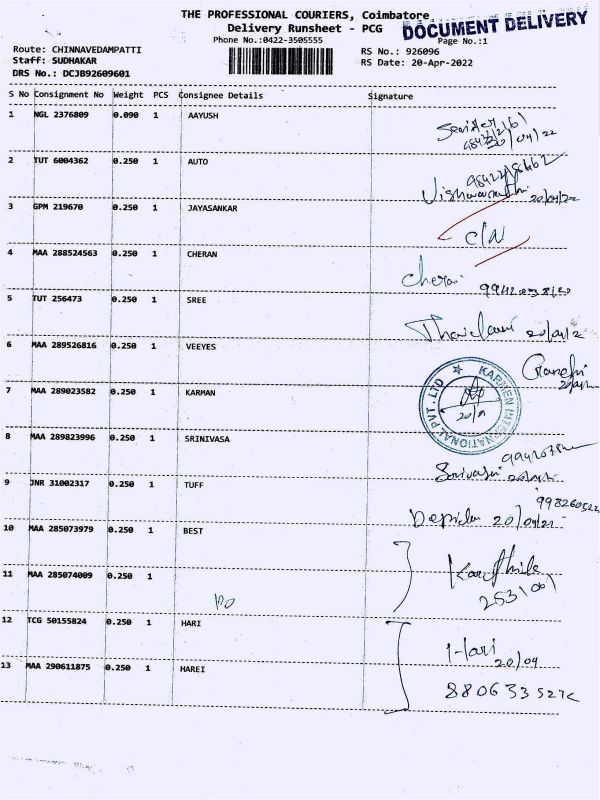 THE PROFESSIONAL COURIERS, Coimbatore
DOCUMENT DELIVERY
Delivery Runsheet - PCG
Phone No.:0422-3505555
Page No.:1
Route: CHINNAVEDAMPATTI
RS No.: 926096
Staff: SUDHAKAR
RS Date: 20-Apr-2022
DRS No.: DCJB92609601
S No Consignment No Weight PCS Consignee Details Signature
1 NGL 2376809 0.090 1 AAYUSH
2 TUT 6004362 0.250 1 AUTO
20/04/22
3 GPM 219670 0.250 1 JAYASANKAR
C/N
4 MAA 288524563 0.250 1 CHERAN
Cheran
5 TUT 256473 0.250 1 SREE
6 MAA 289526816 0.250 1 VEEYES
7 MAA 289023582 0.250 1 KARMAN
KARMEN INTERNATIONAL PVT. LTD
8 MAA 289823996 0.250 1 SRINIVASA
9 JNR 31002317 0.250 1 TUFF
20/04/22
10 MAA 285073979 0.250 1 BEST
11 MAA 285074009 0.250 1
12 TCG 50155824 0.250 1 HARI
Hari
20/04
13 MAA 290611875 0.250 1 HAREI